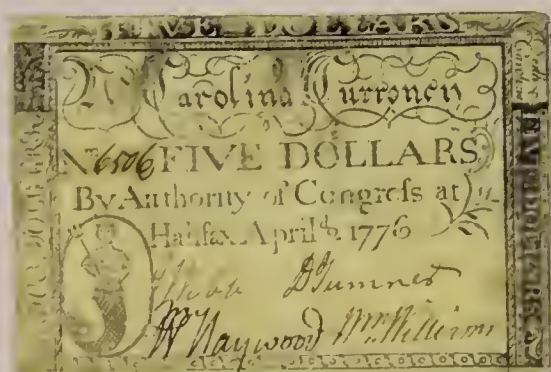 FIVE DOLLARS
N. Carolina Currency
No 6506 FIVE DOLLARS
By Authority of Congreſs at
Halifax, April 2d. 1776
D Sumner
W Haywood Wm. Williams